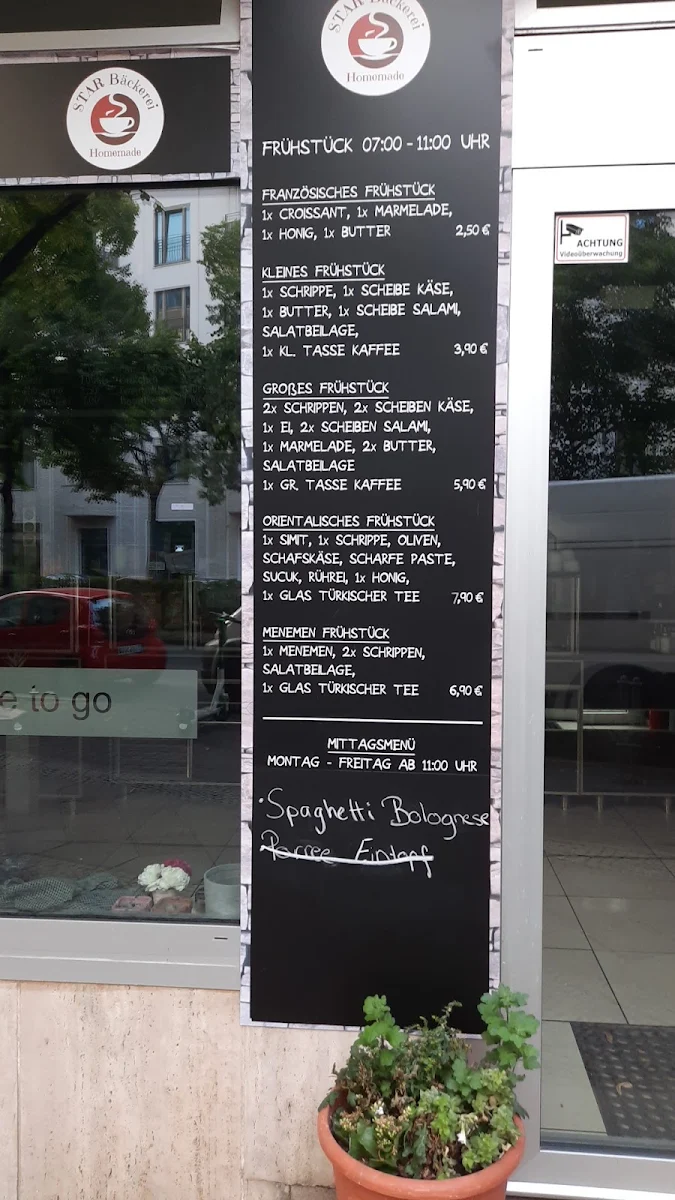 STAR Bäckerei
Homemade
STAR Bäckerei
Homemade
FRÜHSTÜCK 07:00 - 11:00 UHR
FRANZÖSISCHES FRÜHSTÜCK
1x CROISSANT, 1x MARMELADE,
1x HONIG, 1x BUTTER 2,50 €
KLEINES FRÜHSTÜCK
1x SCHRIPPE, 1x SCHEIBE KÄSE,
1x BUTTER, 1x SCHEIBE SALAMI,
SALATBEILAGE,
1x KL. TASSE KAFFEE 3,90 €
GROßES FRÜHSTÜCK
2x SCHRIPPEN, 2x SCHEIBEN KÄSE,
1x EI, 2x SCHEIBEN SALAMI,
1x MARMELADE, 2x BUTTER,
SALATBEILAGE
1x GR. TASSE KAFFEE 5,90 €
ORIENTALISCHES FRÜHSTÜCK
1x SIMIT, 1x SCHRIPPE, OLIVEN,
SCHAFSKÄSE, SCHARFE PASTE,
SUCUK, RÜHREI, 1x HONIG,
1x GLAS TÜRKISCHER TEE 7,90 €
MENEMEN FRÜHSTÜCK
1x MENEMEN, 2x SCHRIPPEN,
SALATBEILAGE,
1x GLAS TÜRKISCHER TEE 6,90 €
MITTAGSMENÜ
MONTAG - FREITAG AB 11:00 UHR
• Spaghetti Bolognese
Porree Eintopf
ACHTUNG
Videoüberwachung
e to go